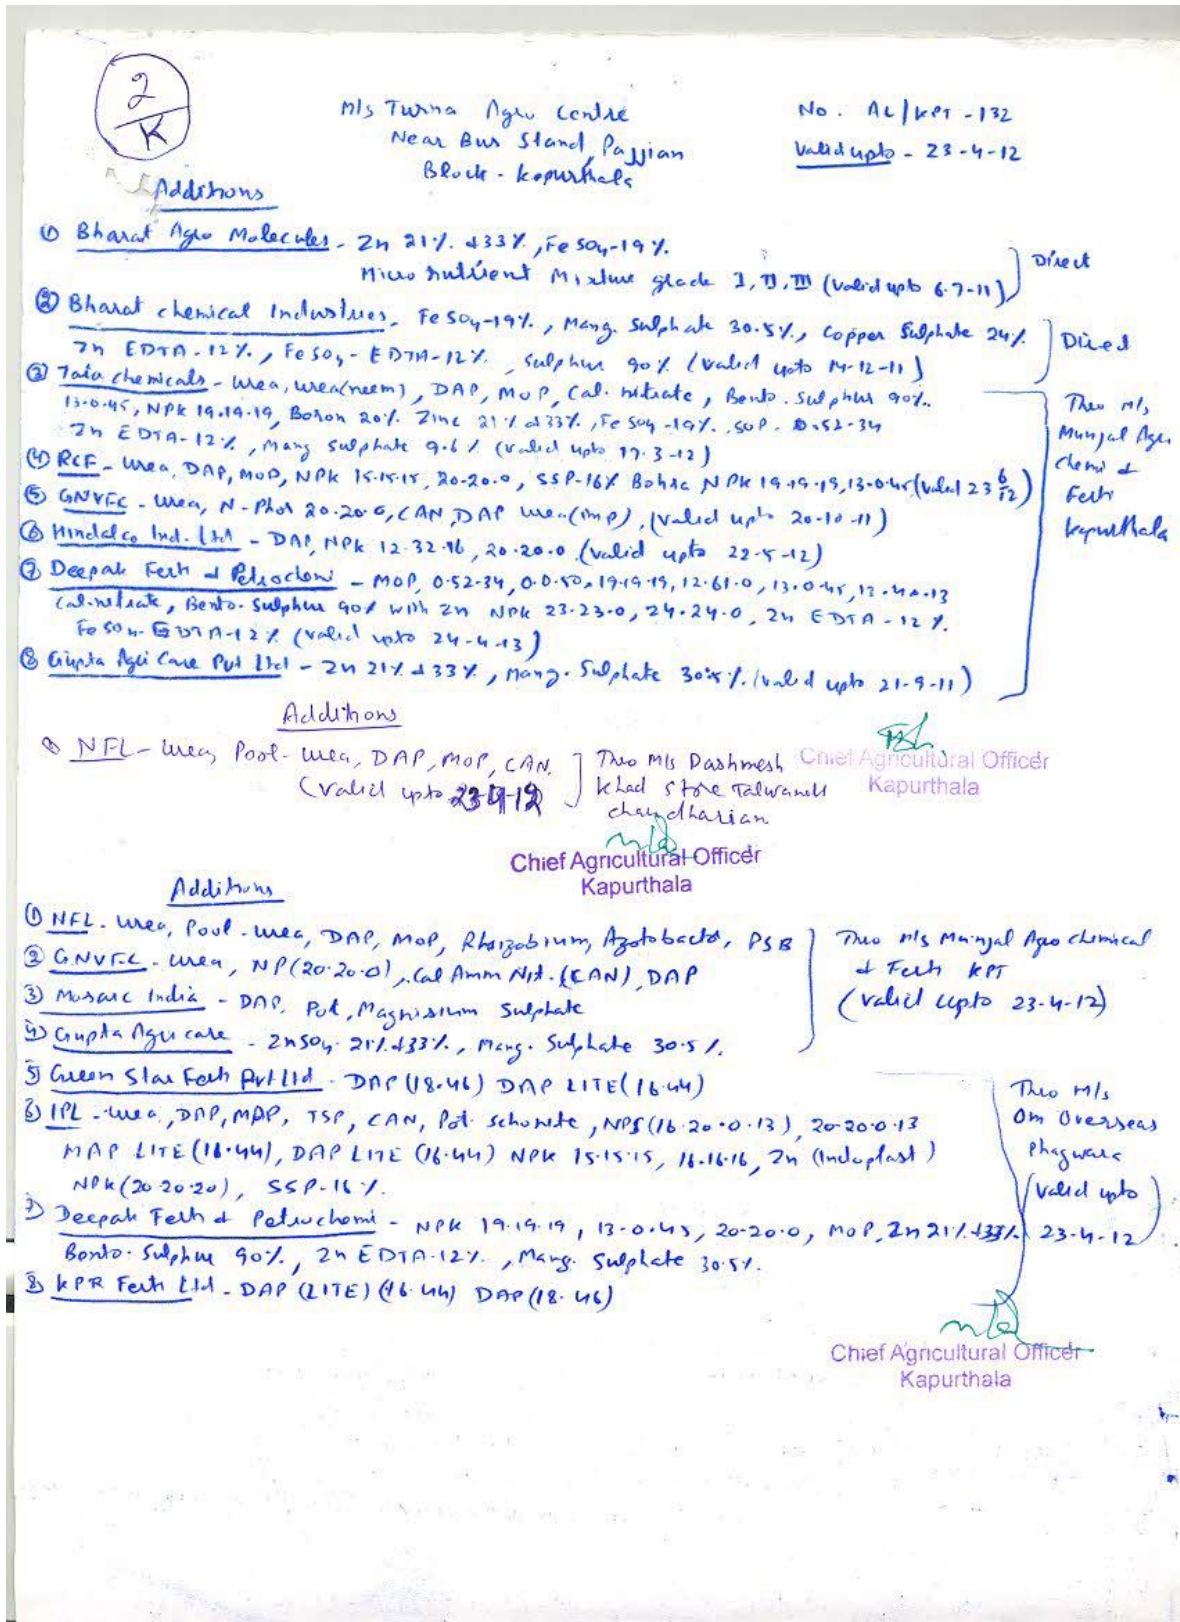 2/K
M/s Turna Agro Centre
Near Bus Stand, Pajjian
Block - Kapurthala
No. AL/KPT -132
Valid upto - 23-4-12
Additions
① Bharat Agro Molecules - Zn 21% &33%, FeSO4-19%.
Micro nutrient Mixture grade I, II, III (valid upto 6-7-11)
Direct
② Bharat chemical Industries - FeSO4-19%, Mang. Sulphate 30.5%, Copper Sulphate 24%
Zn EDTA-12%, FeSO4-EDTA-12%, Sulphur 90% (valid upto 14-12-11)
Direct
③ Tata chemicals - Urea, urea(neem), DAP, MOP, Cal. nitrate, Bento. Sulphur 90%.
13-0-45, NPK 19.19.19, Boron 20%. Zinc 21% &33%, FeSO4-19%. SOP. 0.52-34
Zn EDTA-12%, Mang sulphate 9.6% (valid upto 17-3-12)
④ RCF - Urea, DAP, MOP, NPK 15.15.15, 20-20.0, SSP-16% NPK 19.19.19, 13-0-45 (Valid 23 6/12)
⑤ GNVFC - Urea, N-Phos 20.20.0, CAN, DAP urea(imp), (valid upto 20-10-11)
⑥ Hindalco Ind. Ltd - DAP, NPK 12.32.16, 20.20.0 (valid upto 22-5-12)
⑦ Deepak Fert & Petrochemi - MOP, 0.52-34, 0.0.50, 19.19.19, 12.61.0, 13.0.45, 13.40.13
Cal-nitrate, Bento. Sulphur 90% with Zn NPK 23-23-0, 24-24-0, Zn EDTA-12%.
FeSO4-EDTA-12% (valid upto 24-4-13)
⑧ Gupta Agri Care Pvt Ltd - Zn 21% &33%, Mang. Sulphate 30.5%. (valid upto 21-9-11)
Thro M/s
Munjal Agro
Chemi &
Fert
Kapurthala
Additions
① NFL - Urea, Pool-urea, DAP, MOP, CAN.
(valid upto 23-4-12
Thro M/s Dashmesh
Khad Store Talwandi
chaudharian
Chief Agricultural Officer
Kapurthala
Chief Agricultural Officer
Kapurthala
Additions
① NFL - Urea, Pool-urea, DAP, MOP, Rhizobium, Azotobacto, PSB
② GNVFC - Urea, NP(20.20.0), Cal Amm Nit. (CAN), DAP
③ Mosaic India - DAP, Pot, Magnisium Sulphate
④ Gupta Agri care - ZnSO4 21% &33%, Mang. Sulphate 30.5%.
Thro M/s Munjal Agro chemical
& Fert KPT
(valid upto 23-4-12)
5) Green Star Fert Pvt Ltd - DAP(18.46) DAP LITE(16.44)
6) IPL - Urea, DAP, MAP, TSP, CAN, Pot. Schonite, NPS(16.20.0.13), 20-20.0.13
MAP LITE(16.44), DAP LITE (16.44) NPK 15.15.15, 16.16.16, Zn (Indoplast)
NPK(20.20.20), SSP-16%.
7) Deepak Fert & Petrochemi - NPK 19.19.19, 13-0.45, 20-20.0, MOP, Zn 21% &33%
Bento. Sulphur 90%, Zn EDTA-12%, Mang. Sulphate 30.5%.
8) KPR Fert Ltd - DAP (LITE) (16.44) DAP(18.46)
Thro M/s
Om Overseas
Phagwara
(valid upto
23-4-12)
Chief Agricultural Officer
Kapurthala